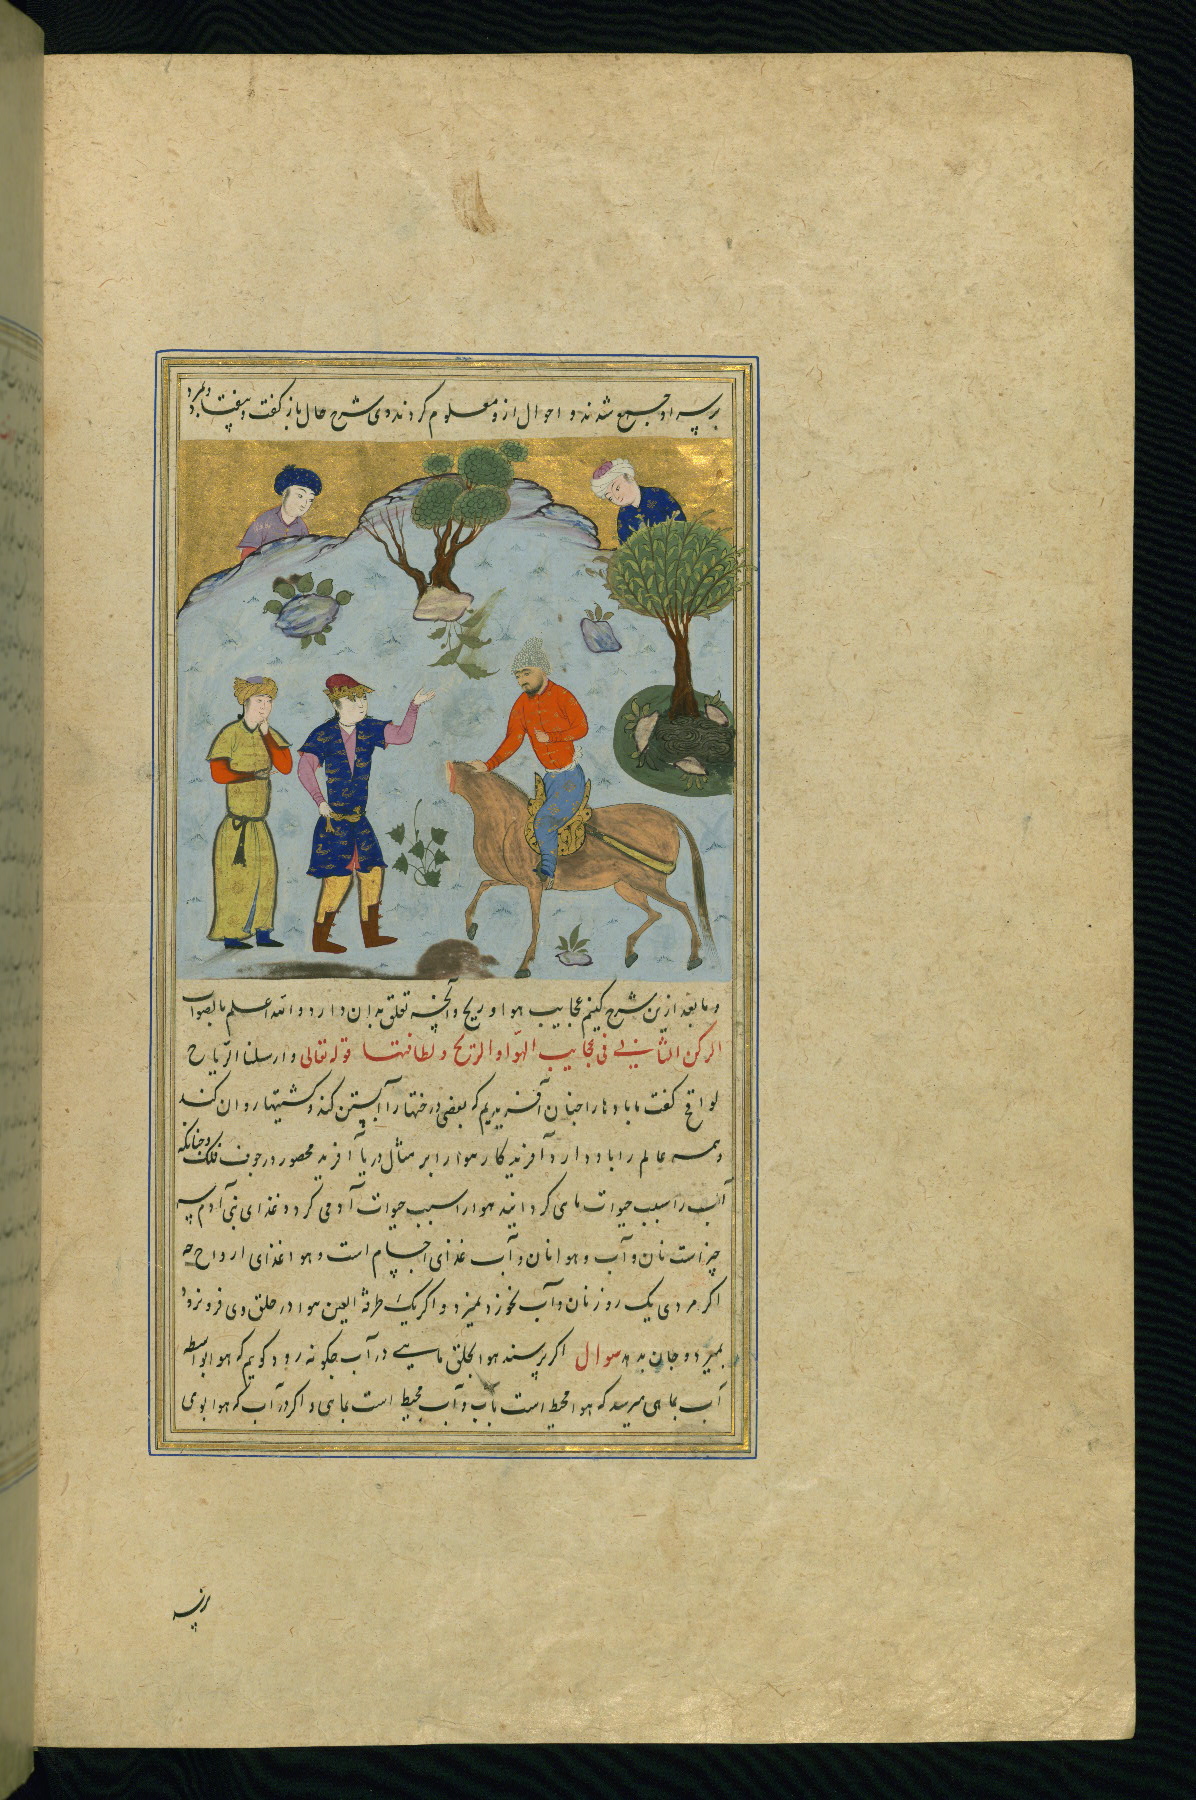 بر سر او جمع شدند و احوال ازو معلوم کردند وی شرح حال باز گفت و بیفتاد و بمرد
و ما بعد ازین شرح کنیم عجایب هوا و ریح و آنچه تعلق بدان دارد و الله اعلم بالصواب
الرکن الثانی فی عجایب الهوا و الریح و لطافتها قوله تعالی و ارسلنا الریاح
لواقح گفت ما بادها را چنان آفریدیم که بعضی درختها را آبستن کند و کشتیها روان کند
و همه عالم را باد دارد آفریدکار هوا را بر مثال دریا آفرید محصور در جوف فلک و چنانکه
آب را سبب حیوات ماهی گردانید هوا را سبب حیوات آدمی کرد و غذای بنی آدم سه
چیز است نان و آب و هوا نان و آب غذای اجسام است و هوا غذای ارواح چه
اگر مردی یک روز نان و آب نخورد نمیرد و اگر یک طرفة العین هوا در حلق وی فرو نرود
بمیرد و جان بدهد سوال اگر پرسند هوا بحلق ماهی در آب چگونه رود گویم که هوا بواسطه
آب بماهی میرسد که هوا محیط است بآب و آب محیط است بماهی و اگر در آب که هوا بوی